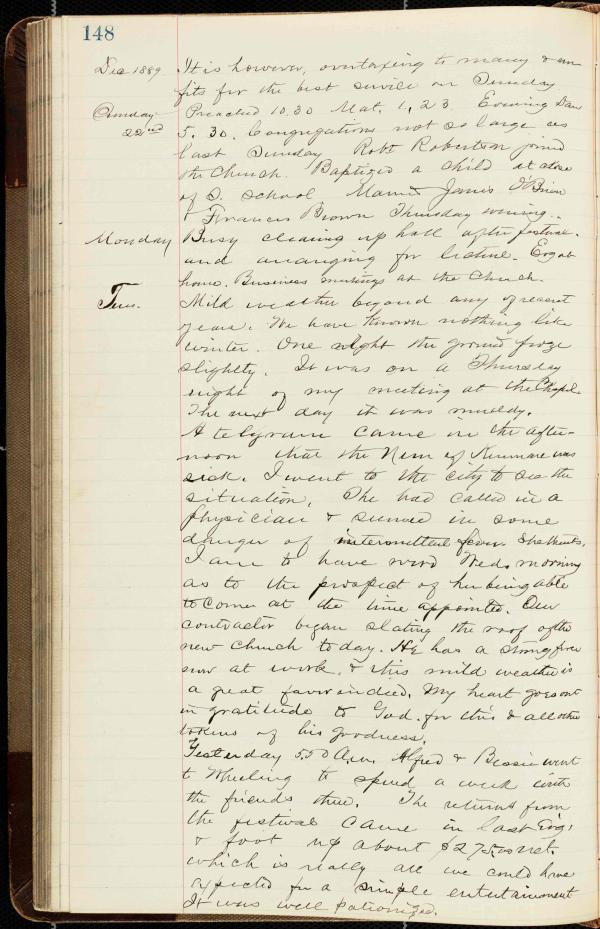 148
Dec 1889 It is however, overtaxing to many & un
fits for the best service on Sunday
Sunday Preached 10.30 Mat. 1, 23. Evening Dan
22nd 5, 30. Congregations not so large as
last Sunday Robt Robertson joined
the Church. Baptized a child at close
of S. School Married James O'Brien
& Frances Brown Thursday evening.
Monday Busy clearing up hall after festival.
and arranging for lecture. Evg at
home. Business meetings at the Church.
Tues. Mild weather beyond any of recent
years. We have known nothing like
winter. One night the ground froze
slightly. It was on a Thursday
night of my meeting at the Chapel.
The next day it was muddy.
A telegram came in the after-
noon that the Nun of Kenmare was
sick. I went to the city to see the
situation. She had called in a
physician & seemed in some
danger of intermittent fever.
I am to have word Weds morning
as to the prospect of her being able
to come at the time appointed. Our
contractor began slating the roof of the
new church to day. He has a strong force
now at work. & this mild weather is
a great favor indeed. My heart goes out
in gratitude to God. for this & all other
tokens of his goodness.
Yesterday 5.50 A.m. Alfred & Bessie went
to Wheeling to spend a week with
the friends there. The returns from
the festival came in last Evg:
& foot up about $275. net.
which is really all we could have
expected for a simple entertainment
It was well patronized.